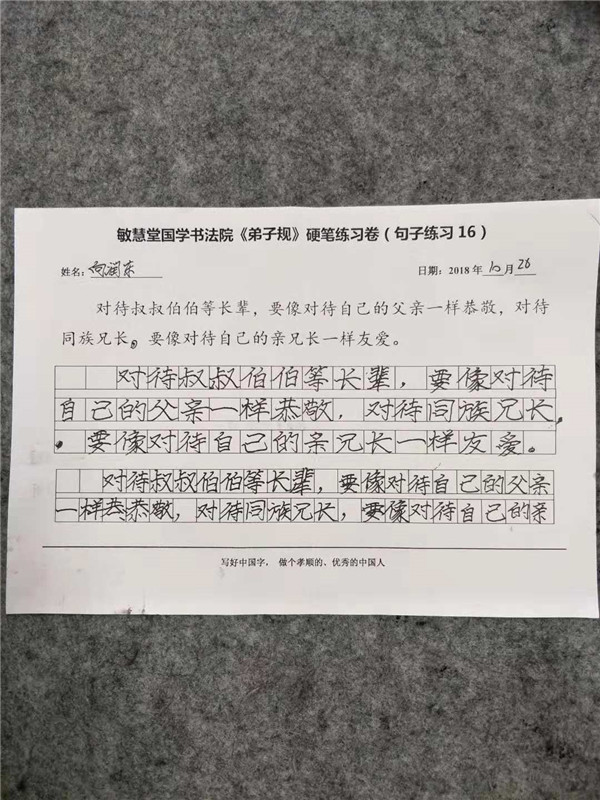 敏慧堂国学书法院《弟子规》硬笔练习卷（句子练习16）
姓名：向润东 日期：2018年10月26
对待叔叔伯伯等长辈，要像对待自己的父亲一样恭敬，对待
同族兄长，要像对待自己的亲兄长一样友爱。
对待叔叔伯伯等长辈，要像对待
自己的父亲一样恭敬，对待同族兄长，
要像对待自己的亲兄长一样友爱。
对待叔叔伯伯等长辈，要像对待自己的父亲
一样恭恭敬，对待同族兄长，要像对待自己的亲
写好中国字， 做个孝顺的、优秀的中国人